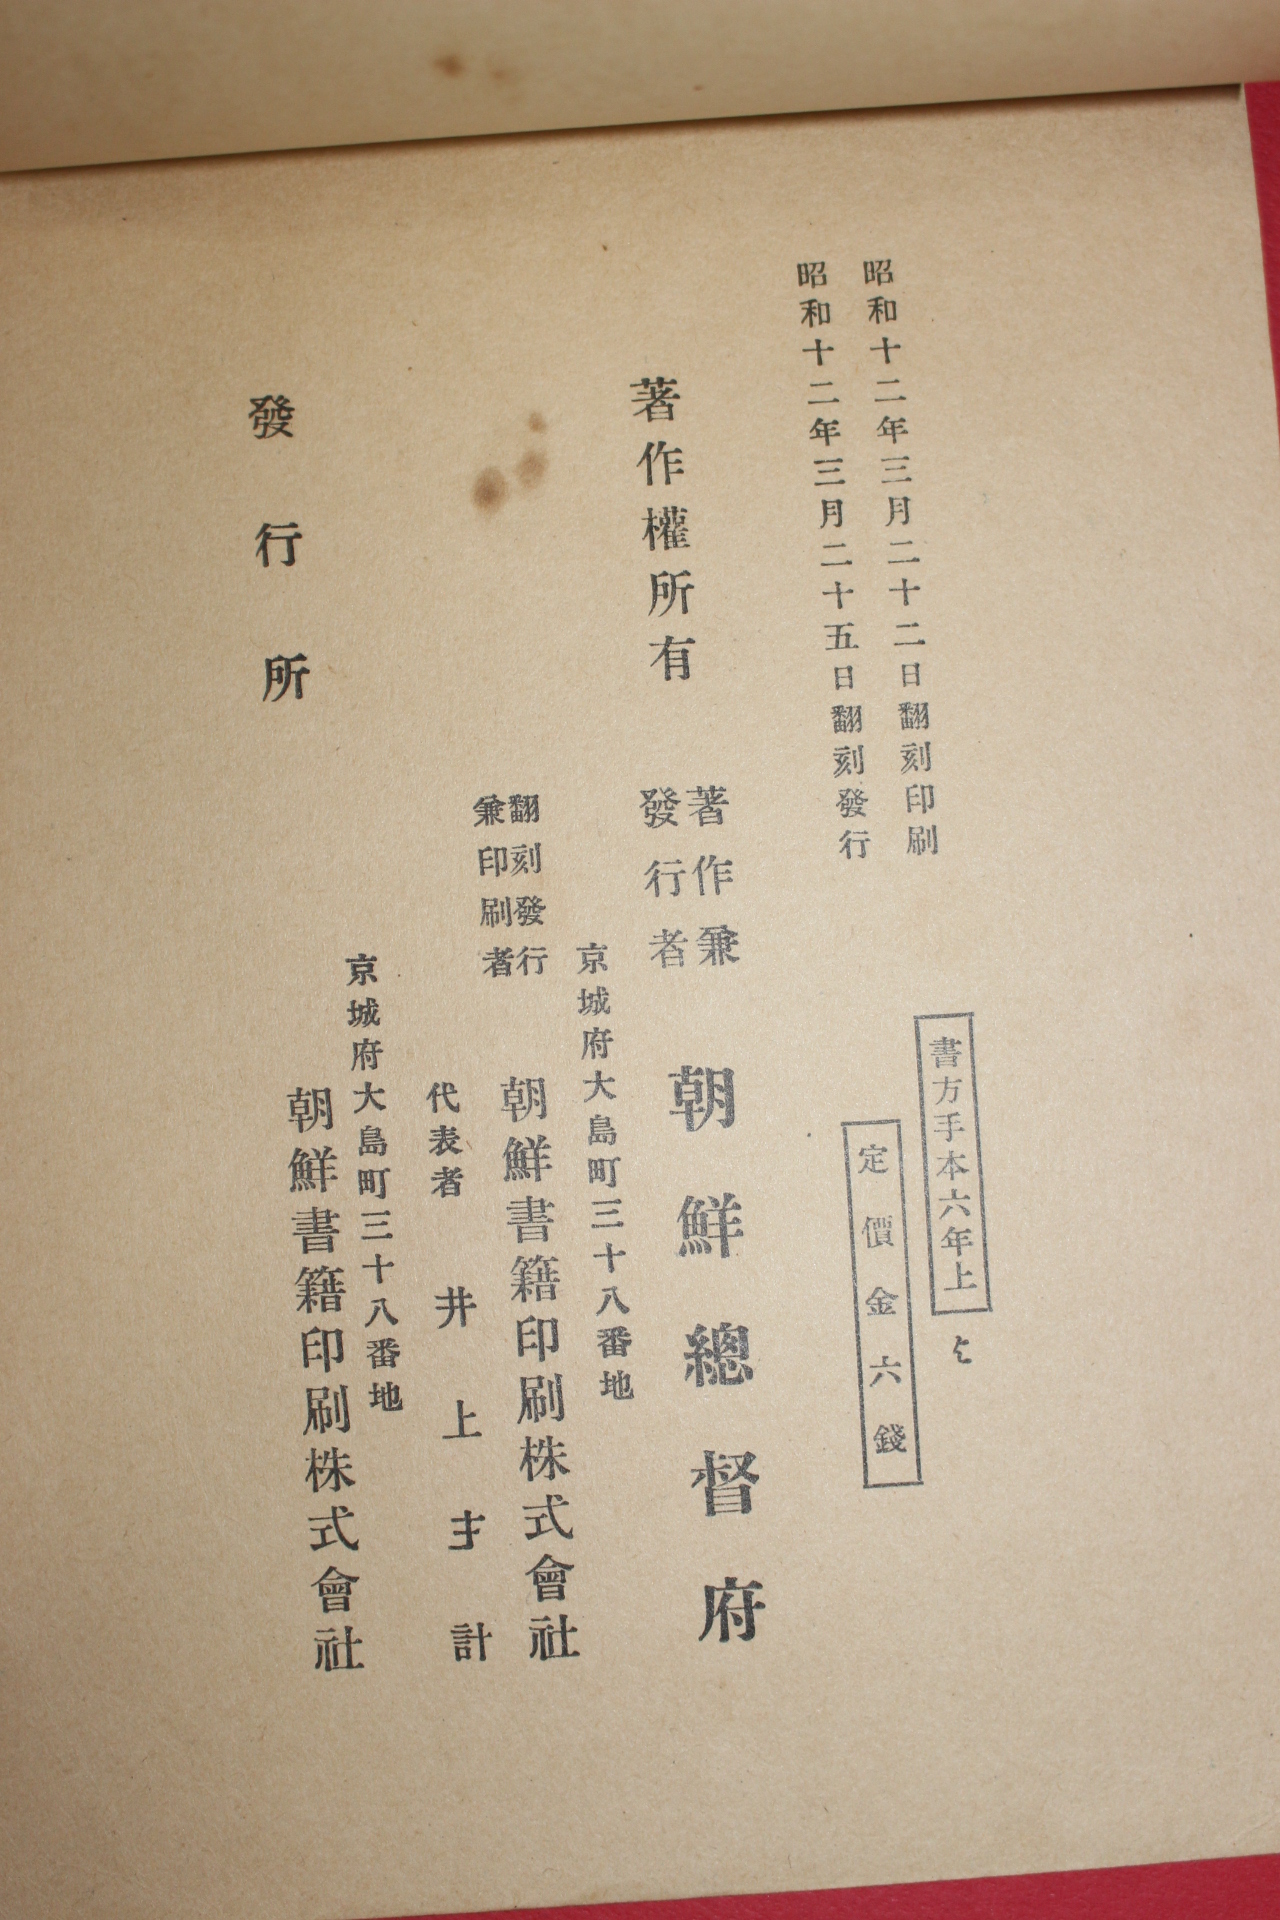 昭和十二年三月二十二日翻刻印刷
昭和十二年三月二十五日翻刻發行
書方手本六年上
と
定價金六錢
著作權所有
著作兼
發行者
朝鮮總督府
京城府大島町三十八番地
翻刻發行
兼印刷者
朝鮮書籍印刷株式會社
代表者 井上主計
發行所
京城府大島町三十八番地
朝鮮書籍印刷株式會社